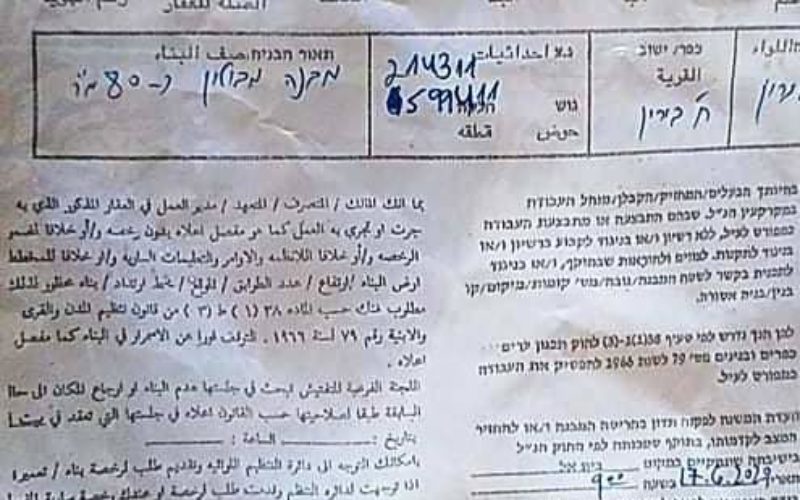 تصف البناء תאור הבניה
מבנה מבולוקין כ-80 מ"ר
נ.צ احداثيات
214311
599411
גוש
حوض قطعه
כפר/ ישוב
القرية
ח' בירין
اللواء
بما انك المالك / المتصرف / المتعهد / مدير العمل في العقار المذكور الذي به
جرت او تجري به العمل كما هو مفصل اعلاه بدون رخصه و/أو خلافا
الرخصه و/أو خلافا للانظمه والاوامر والتعليمات السارية و/او خلافا للمخطط
ارض البناء / ارتفاع / عدد الطوابق / الموقع / خط ارتداد / بناء محظور لذلك
مطلوب منك حسب الماده ٣٨ (١) ط (٣) من قانون تنظيم المدن والقرى
والابنية رقم ٧٩ لسنة ١٩٦٦ التوقف فورا عن الاستمرار في البناء كما مفصل
اعلاه .
اللجنة الفرعية للتفتيش تبحث في جلستها هدم البناء او ارجاع المكان الى حالته
السابقة طبقا لصلاحيتها حسب القانون اعلاه في جلستها التي تعقد في
بتاريخ : الساعة :
بامكانك التوجه الى دائرة التنظيم اللوائيه وتقديم طلب لرخصة بناء /
בהיותך הבעלים/המחזיק/הקבלן/מנהל העבודה
במקרקעין הנ"ל, שבהם התבצעה או מתבצעת העבודה
כמפורט לעיל, ללא רשיון ו/או בניגוד לקבוע ברשיון ו/או
בניגוד לתקנות, לצווים ולהוראות שבתוקף, ו/או בניגוד
לתכנית בקשר לשטח המבנה/גובה/מס' קומות/מיקום/קו
בנין/בנית אסורה.
לכן הנך נדרש לפי סעיף 38(1)ג-(3) לחוק תכנון ערים
כפרים ובנינים מס' 79 לשנת 1966 להפסיק את העבודה
כמפורט לעיל.
ועדת המשנה לפקוח תדון בהריסת המבנה ו/או להחזיר
המצב לקדמותו, בתוקף סמכותה לפי החוק הנ"ל
בישיבתה שתתקיים במקום בית אל
17.6.2029 בשעה 9 00